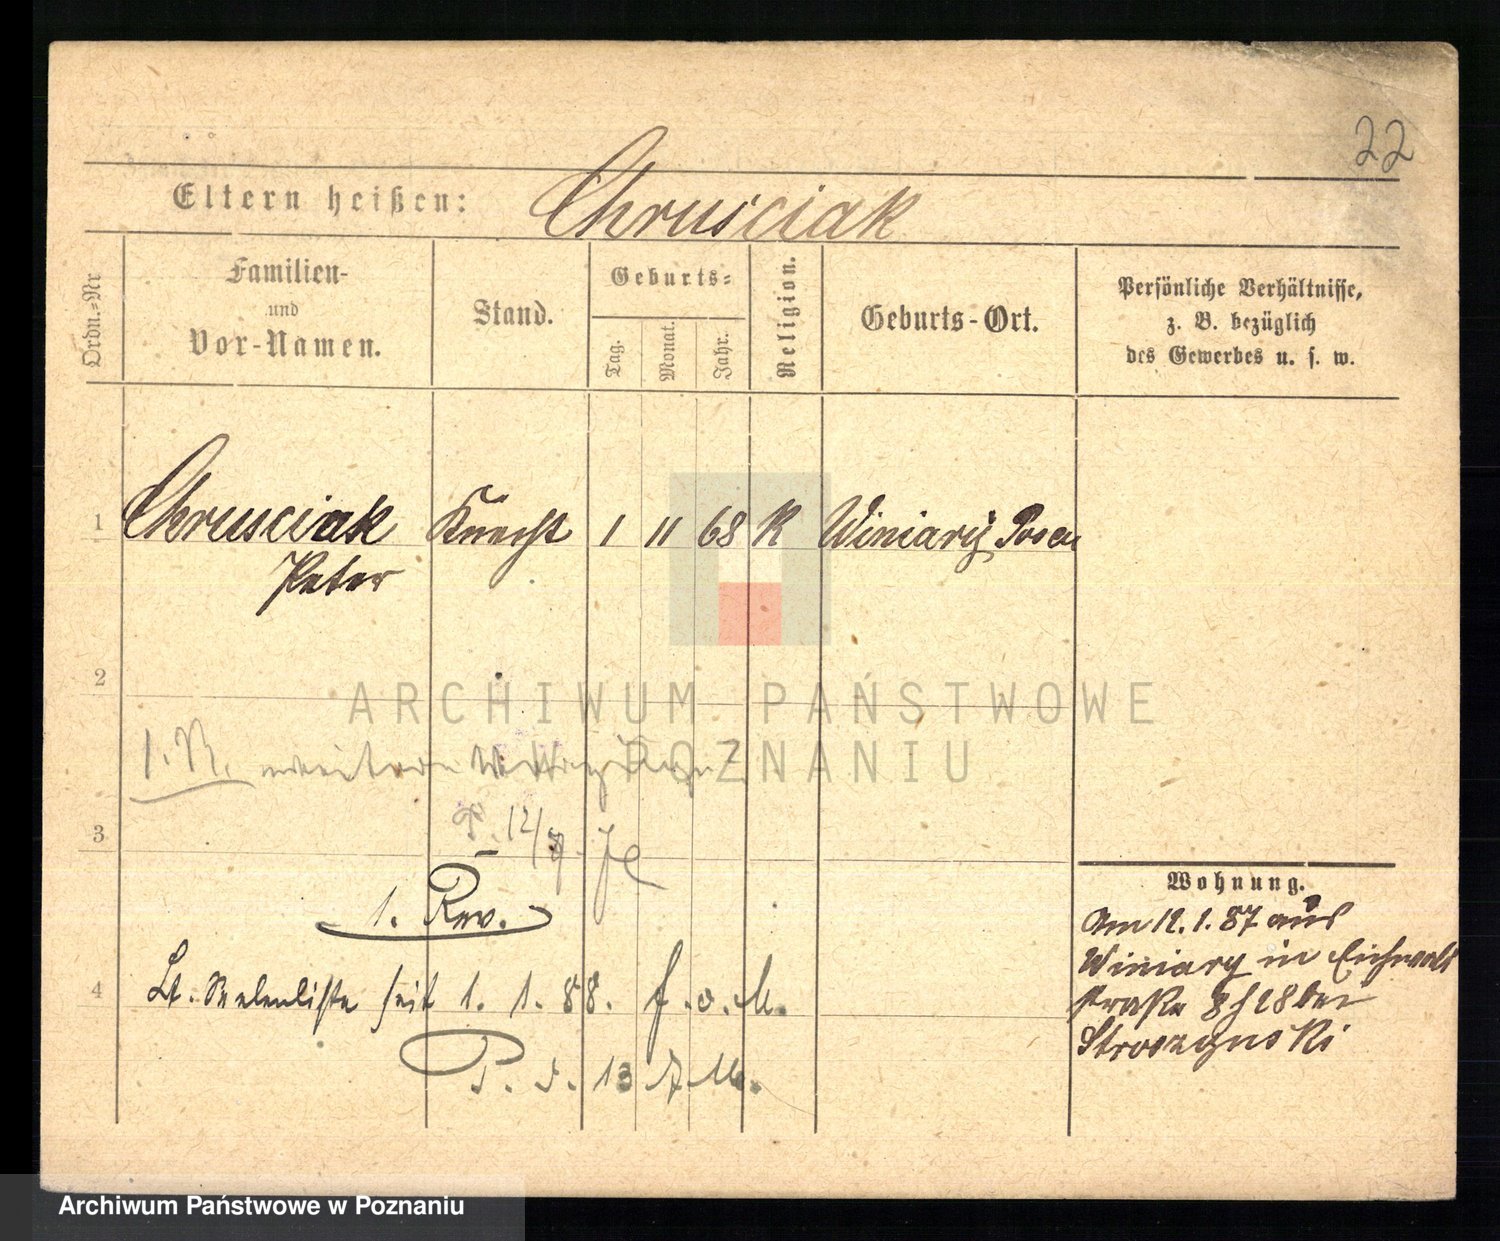 22
Eltern heißen: Chrusciak
Ordn.=Nr
Familien-
und
Vor-Namen.
Stand.
Geburts=
Tag.
Monat.
Jahr.
Religion.
Geburts-Ort.
Persönliche Verhältnisse,
z. B. bezüglich
des Gewerbes u. s. w.
1 Chrusciak Knecht 1 11 68 K Winiary Posen
Peter
2
ARCHIWUM PAŃSTWOWE
W POZNANIU
1. R.
3
12/
1. Rev.
4 Lt. Seelenliste seit 1. 1. 88. f. o. M.
P. 5. 13
Wohnung.
Am 12. 1. 87 aus
Winiary in Eichwald
straße 28 bei
Stroszynski
Archiwum Państwowe w Poznaniu